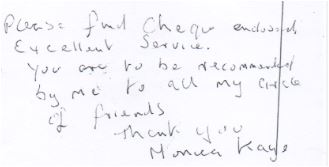 Please find Cheque endorsed
Excellent Service.
You are to be recommended
by me to all my circle
of friends
Thank you
Monica Kaye